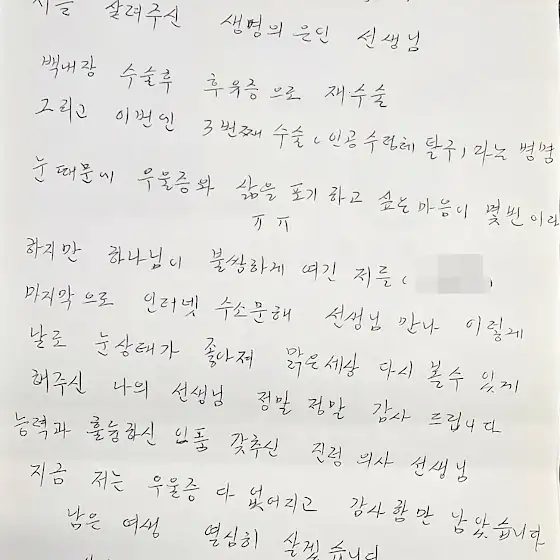 저를 살려주신 생명의 은인 선생님
백내장 수술후 후유증으로 재수술
그리고 이번엔 3번째 수술(인공수정체 탈구)라는 병명
눈때문에 우울증과 삶을 포기하고 싶은마음이 몇번이라
ㅠㅠ
하지만 하나님이 불쌍하게 여긴 저를( )
마지막으로 인터넷 수소문해 선생님 만나 이렇게
날로 눈상태가 좋아져 맑은세상 다시 볼수 있게
해주신 나의 선생님 정말 정말 감사 드립니다
능력과 훌늉하신 인품 갖추신 진정 의사 선생님
지금 저는 우울증 다 없어지고 감사함만 남았습니다
남은 여생 열심히 살겠습니다